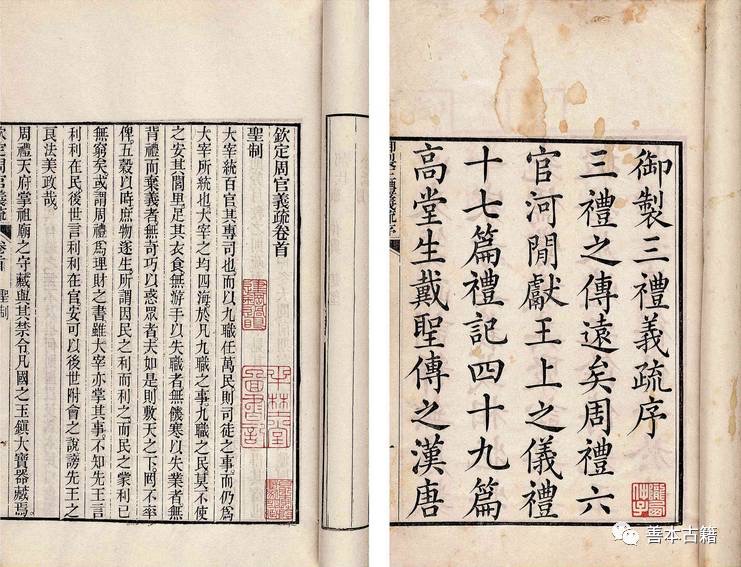 御製三禮義疏序
三禮之傳遠矣周禮六
官河閒獻王上之儀禮
十七篇禮記四十九篇
高堂生戴聖傳之漢唐
欽定周官義疏卷首
聖制
大宰統百官其專司也而以九職任萬民則司徒之事而仍爲
大宰所統也大宰之均四海於凡九職之事九職之民莫不使
之安其閭里足其衣食無游手以失職者無饑寒以失業者無
背禮而棄義者無奇巧以惑眾者夫如是則敷天之下罔不率
俾五穀以時庶物遂生所謂因民之利而利之而民之蒙利已
無窮矣或謂周禮爲理財之書雖大宰亦掌其事不知先王言
利利在民後世言利利在官安可以後世附會之說謗先王之
良法美政哉
周禮天府掌祖廟之守藏與其禁令凡國之玉鎮大寶器藏焉
欽定周官義疏 卷首 聖制
善本古籍